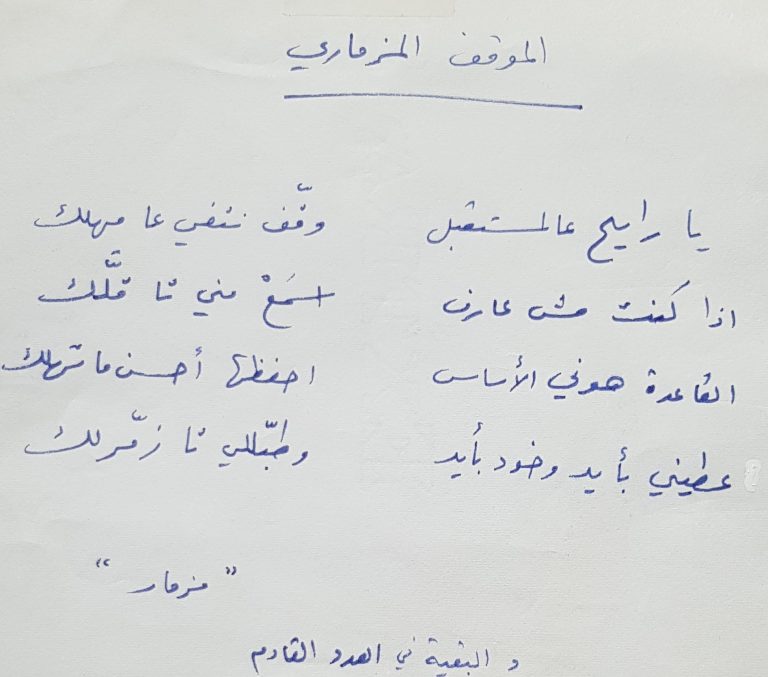 الموقف المزماري
يا رايح عالمستقبل وقّف نتفي عا مهلك
اذا كنت مش عارف اسمَعْ مني تا قلَّك
القاعدة هوني الأساس احفظها أحسن ما تهلك
عطيني بأيد وخود بأيد وطبّللي تا زمّرلك
"مزمار"
و البقية في العدد القادم